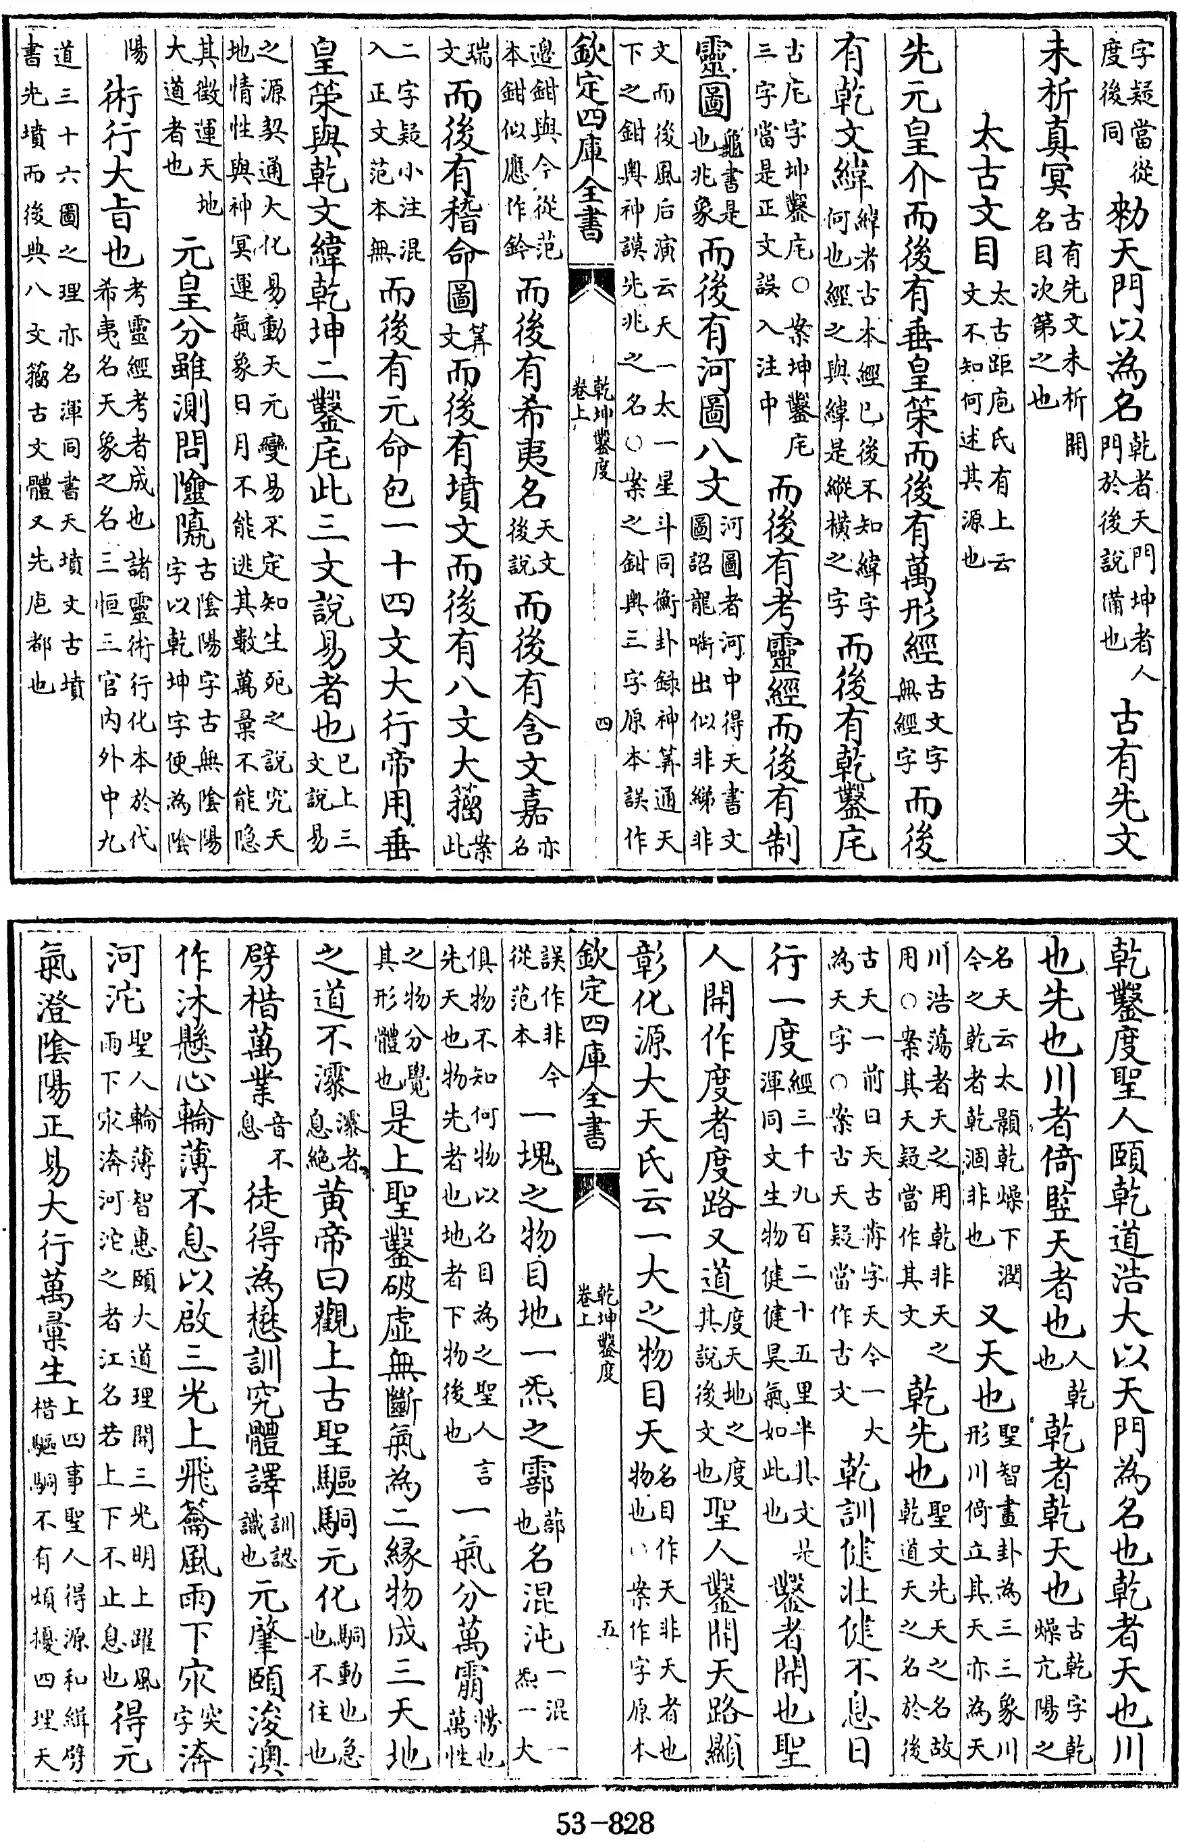 字疑當從度後同勑天門以為名乾者天門坤者人門於後說備也古有先文
未析真冥古有先文未析開名目次第之也
太古文目太古距庖氏有上云文不知何述其源也
先元皇介而後有垂皇策而後有萬形經古文字無經字而後
有乾文緯緯者古本經已後不知緯字何也經之與緯是縱橫之字而後有乾鑿㡯
古㡯字坤鑿㡯○案坤鑿㡯三字當是正文誤入注中而後有考靈經而後有制
靈圖龜書是也兆象而後有河圖八文河圖者河中得天書文圖詔龍啣出似非綈非
文而後風后演云天一太一星斗同衡卦錄神筭通天下之鉗輿神謨兆兆之名○案之鉗輿三字原本誤作
欽定四庫全書
乾坤鑿度
卷上
四
邉鉗與今從范本鉗似應作鈐而後有希夷名天文後說而後有含文嘉亦名
瑞文而後有稽命圖筭文而後有墳文而後有八文大籀案此
二字疑小注混入正文范本無而後有元命包一十四文大行帝用垂
皇策與乾文緯乾坤二鑿㡯此三文說易者也已上三文說易
之源契通大化易動天元變易不定知生死之說究天地情性與神冥運氣象日月不能逃其數萬彙不能隱
其徵運天地大道者也元皇分雖測問陰隲古陰陽字古無陰陽字以乾坤字使為陰
陽術行大旨也考靈經考者成也諸靈術行化本於代希夷名天象之名三恒三官內外中九
道三十六圖之理亦名渾同書天墳文古墳書先墳而後典八文籀古文體又先庖都也
乾鑿度聖人頤乾道浩大以天門為名也乾者天也川
也先也川者倚竪天者也人乾也乾者乾天也古乾字乾燥亢陽之
名天云太顥乾燥下潤今之乾者乾涸非也又天也聖智畫卦為三三象川形川倚立其天亦為天
川浩蕩者天之用乾非天之用○案其天疑當作其文乾先也聖文先天之名故乾道天之名於後
古天一前日天古齊字天今一大為天字○案古天疑當作古文乾訓健壯健不息日
行一度經三千九百二十五里半其文是渾同文生物健健昊氣如此也鑿者開也聖
人開作度者度路又道度天地之度其說後文也聖人鑿開天路顯
彰化源大天氏云一大之物目天名目作天非天者也物也○案作字原本
欽定四庫全書
乾坤鑿度
卷上
五
誤作非今從范本一塊之物目地一炁之霩部也名混沌一混一炁一大
俱物不知何物以名目為之聖人言先天也物先者也地者下物後也一氣分萬霱㥜也萬性
之物分覺其形體也是上聖鑿破虛無斷氣為二緣物成三天地
之道不㶟㶟者息絶黃帝曰觀上古聖驅駧元化駧動也急也不住也
劈楷萬業音不息徒得為懋訓究體譯訓認識也元肇頤浚澳
作沐懸心輪薄不息以啟三光上飛籥風雨下㳄突字渀
河沱聖人輪薄智惠頤大道理開三光明上躍風雨下㳄渀河沱之者江名若上下不止息也得元
氣澄陰陽正易大行萬彙生上四事聖人得源和緝劈楷驅駧不有煩擾四理天
53-828